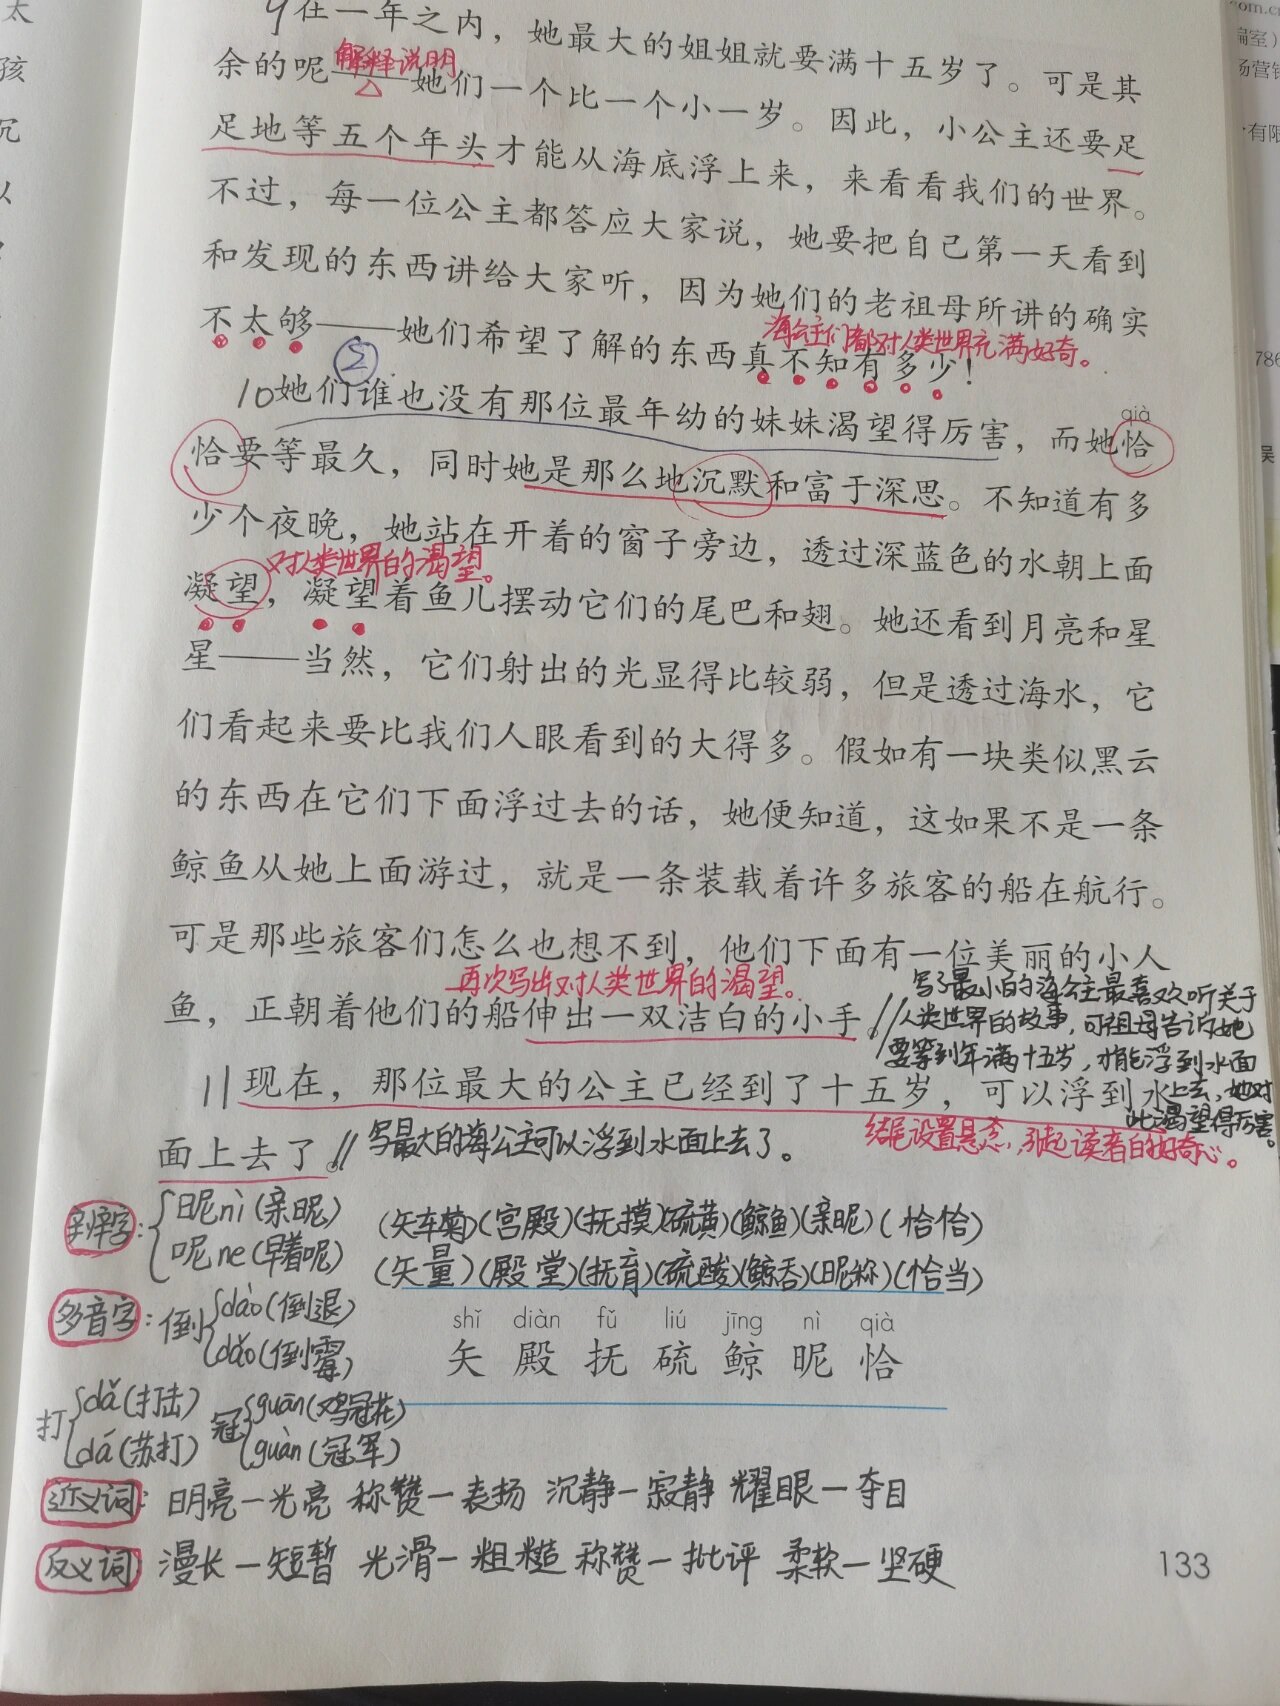 9在一年之内，她最大的姐姐就要满十五岁了。可是其
解释说明
余的呢——她们一个比一个小一岁。因此，小公主还要足
足地等五个年头才能从海底浮上来，来看看我们的世界。
不过，每一位公主都答应大家说，她要把自己第一天看到
和发现的东西讲给大家听，因为她们的老祖母所讲的确实
海公主们都对人类世界充满好奇。
不太够——她们希望了解的东西真不知有多少！
②
qià
10她们谁也没有那位最年幼的妹妹渴望得厉害，而她恰
恰要等最久，同时她是那么地沉默和富于深思。不知道有多
少个夜晚，她站在开着的窗子旁边，透过深蓝色的水朝上面
对人类世界的渴望。
凝望，凝望着鱼儿摆动它们的尾巴和翅。她还看到月亮和星
星——当然，它们射出的光显得比较弱，但是透过海水，它
们看起来要比我们人眼看到的大得多。假如有一块类似黑云
的东西在它们下面浮过去的话，她便知道，这如果不是一条
鲸鱼从她上面游过，就是一条装载着许多旅客的船在航行。
可是那些旅客们怎么也想不到，他们下面有一位美丽的小人
再次写出对人类世界的渴望。
鱼，正朝着他们的船伸出一双洁白的小手。//
写了最小的海公主最喜欢听关于
人类世界的故事，可祖母告诉她
要等到年满十五岁，才能浮到水面
上去，她对
此渴望得厉害。
11现在，那位最大的公主已经到了十五岁，可以浮到水
面上去了。//
写最大的海公主可以浮到水面上去了。
结尾设置悬念，引起读者的好奇心。
昵nì(亲昵)
呢ne(早着呢)
(矢车菊)(宫殿)(抚摸)(硫黄)(鲸鱼)(亲昵)(恰恰)
(矢量)(殿堂)(抚育)(硫酸)(鲸吞)(昵称)(恰当)
多音字：倒 dào(倒退)
dǎo(倒霉)
shǐ diàn fǔ liú jīng nì qià
矢 殿 抚 硫 鲸 昵 恰
打 dǎ(打击) 冠 guān(鸡冠花)
dá(苏打) guàn(冠军)
近义词：明亮—光亮 称赞—表扬 沉静—寂静 耀眼—夺目
反义词 漫长—短暂 光滑—粗糙 称赞—批评 柔软—坚硬
133